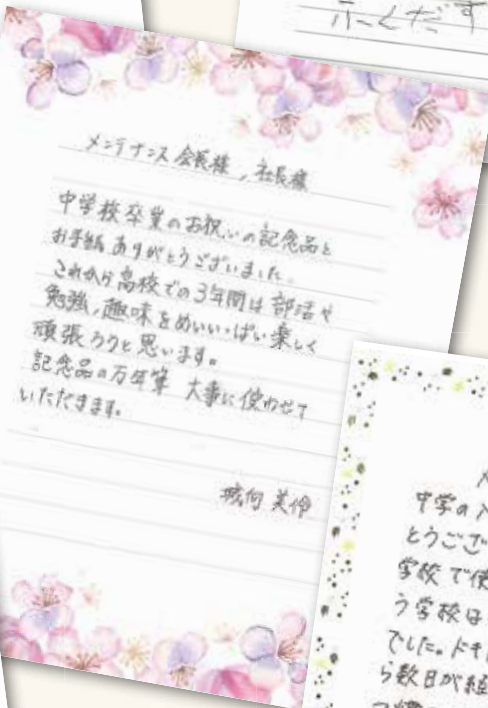 ふくだす
メンテナンス 会長様, 社長様
中学校卒業のお祝いの記念品と
お手紙 ありがとうございました。
これから高校での3年間は 部活や
勉強, 趣味をめいいっぱい楽しく
頑張ろうと思います。
記念品の万年筆 大事に使わせて
いただきます。
中学の入
とうござ
学校で使
う学校は
でした。ドキ
ら数日が経